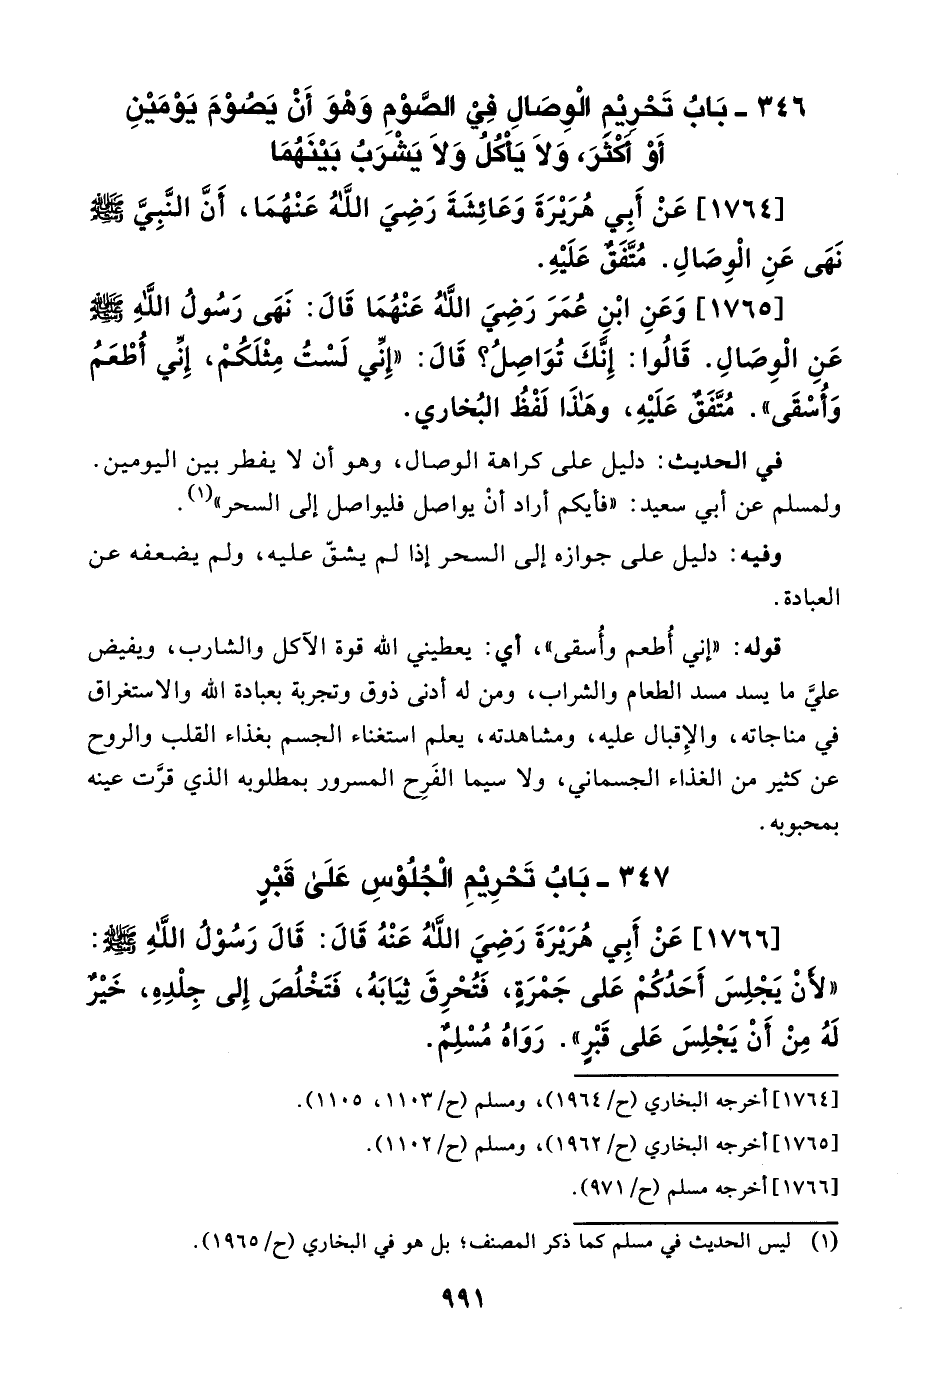 ٣٤٦ ـ بَابُ تَحْرِيْمِ الْوِصَالِ فِيْ الصَّوْمِ وَهْوَ أَنْ يَصُوْمَ يَوْمَيْنِ
أَوْ أَكْثَرَ، وَلَا يَأْكُلُ وَلَا يَشْرَبُ بَيْنَهُمَا
[١٧٦٤] عَنْ أَبِي هُرَيْرَةَ وَعَائِشَةَ رَضِيَ اللَّهُ عَنْهُمَا، أَنَّ النَّبِيَّ ﷺ
نَهَى عَنِ الْوِصَالِ. مُتَّفَقٌ عَلَيْهِ.
[١٧٦٥] وَعَنِ ابْنِ عُمَرَ رَضِيَ اللَّهُ عَنْهُمَا قَالَ: نَهَى رَسُولُ اللَّهِ ﷺ
عَنِ الْوِصَالِ. قَالُوا: إِنَّكَ تُوَاصِلُ؟ قَالَ: «إِنِّي لَسْتُ مِثْلَكُمْ، إِنِّي أُطْعَمُ
وَأُسْقَى». مُتَّفَقٌ عَلَيْهِ، وهَذَا لَفْظُ البُخاري.
في الحديث: دليل على كراهة الوصال، وهو أن لا يفطر بين اليومين.
ولمسلم عن أبي سعيد: «فأيكم أراد أنْ يواصل فليواصل إلى السحر»(١).
وفيه: دليل على جوازه إلى السحر إذا لم يشقّ عليه، ولم يضعفه عن
العبادة.
قوله: «إني أُطعم وأُسقى»، أي: يعطيني الله قوة الآكل والشارب، ويفيض
عليَّ ما يسد مسد الطعام والشراب، ومن له أدنى ذوق وتجربة بعبادة الله والاستغراق
في مناجاته، والإِقبال عليه، ومشاهدته، يعلم استغناء الجسم بغذاء القلب والروح
عن كثير من الغذاء الجسماني، ولا سيما الفَرِح المسرور بمطلوبه الذي قرَّت عينه
بمحبوبه.
٣٤٧ ـ بَابُ تَحْرِيْمِ الْجُلُوْسِ عَلَىٰ قَبْرٍ
[١٧٦٦] عَنْ أَبِي هُرَيْرَةَ رَضِيَ اللَّهُ عَنْهُ قَالَ: قَالَ رَسُوْلُ اللَّهِ ﷺ:
«لأَنْ يَجْلِسَ أَحَدُكُمْ عَلى جَمْرَةٍ، فَتُحْرِقَ ثِيَابَهُ، فَتَخْلُصَ إِلى جِلْدِهِ، خَيْرٌ
لَهُ مِنْ أَنْ يَجْلِسَ عَلى قَبْرٍ». رَوَاهُ مُسْلِمٌ.
[١٧٦٤] أخرجه البخاري (ح/ ١٩٦٤)، ومسلم (ح/ ١١٠٣، ١١٠٥).
[١٧٦٥] أخرجه البخاري (ح/ ١٩٦٢)، ومسلم (ح/ ١١٠٢).
[١٧٦٦] أخرجه مسلم (ح/ ٩٧١).
(١) ليس الحديث في مسلم كما ذكر المصنف؛ بل هو في البخاري (ح/ ١٩٦٥).
٩٩١